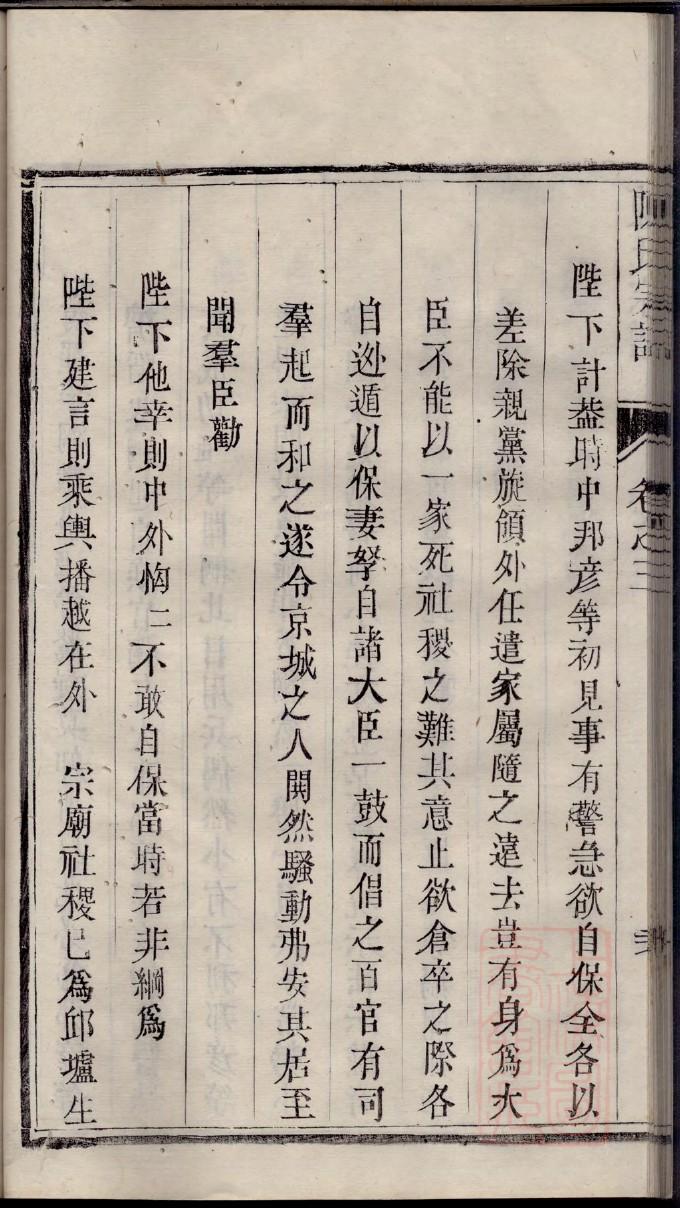 陛下計葢時中邦彥等初見事有警急欲自保全各以
差除親黨旋領外任遣家屬隨之遠去豈有身爲大
臣不能以一家死社稷之難其意止欲倉卒之際各
自逊遁以保妻孥自諸大臣一鼓而倡之百官有司
羣起而和之遂令京城之人閧然騷動弗安其居至
聞羣臣勸
陛下他幸則中外恟二不敢自保當時若非綱爲
陛下建言則乘輿播越在外 宗廟社稷已爲邱墟生
陳氏宗譜 卷之三